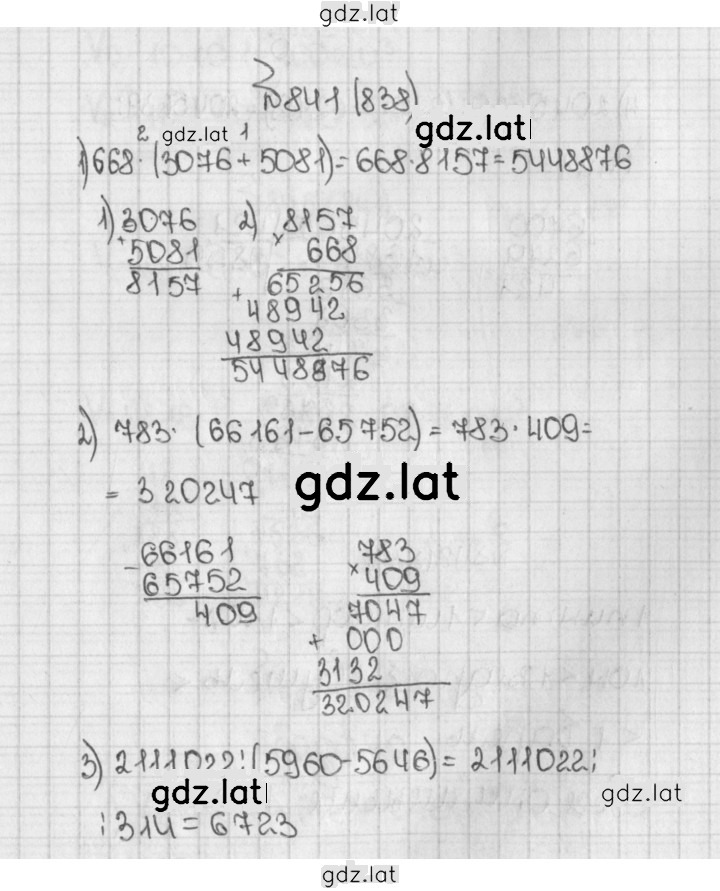 gdz.lat
№841 (838)
2 gdz.lat 1 gdz.lat
1) 668·(3076+5081)=668·8157=5448876
1) 3076 2) 8157
+ 5081 × 668
8157 65256
+ 48942
48942
5448876
2) 783·(66161-65752)=783·409=
= 320247 gdz.lat
- 66161 783
65752 × 409
409 7047
+ 000
3132
320247
3) 2111022:(5960-5646)=2111022:
gdz.lat gdz.lat
:314=6723
gdz.lat